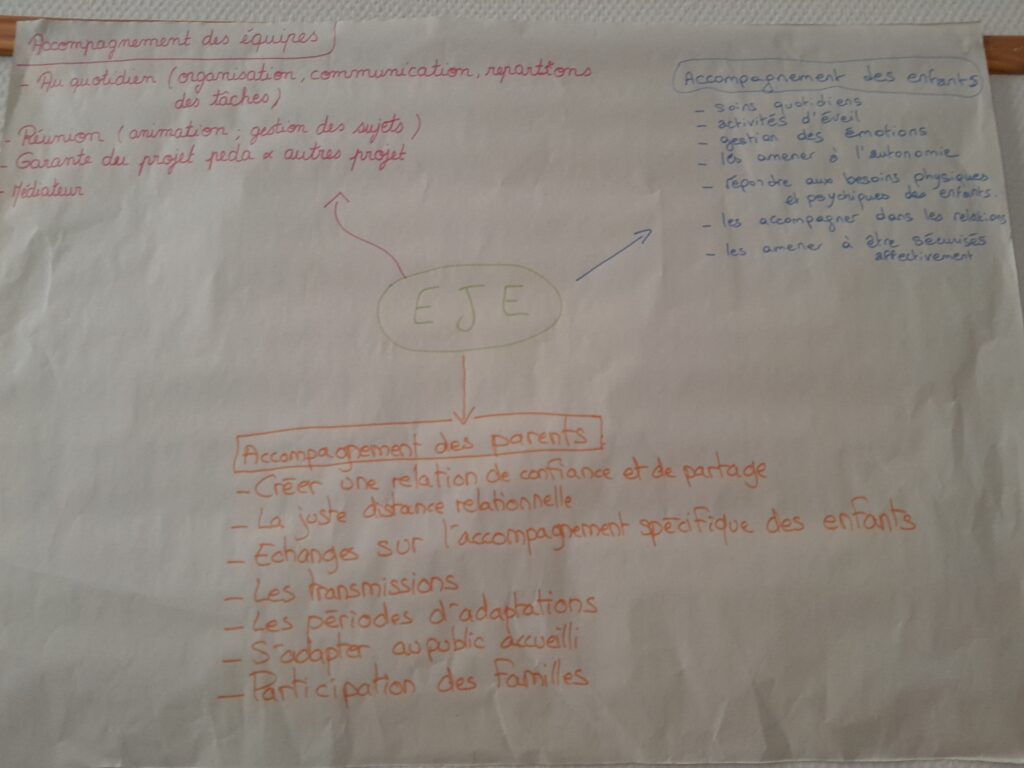 Accompagnement des équipes
- Au quotidien (organisation, communication, repartitions
des tâches)
- Réunion (animation, gestion des sujets)
- Garante du projet peda & autres projet
- Médiateur
Accompagnement des enfants
- soins quotidiens
- activités d'éveil
- gestion des émotions
- les amener à l'autonomie
- répondre aux besoins physiques
et psychiques des enfants.
- les accompagner dans les relations
- les amener à être sécurisés
affectivement
EJE
Accompagnement des parents
- Créer une relation de confiance et de partage
- La juste distance relationnelle
- Echanges sur l'accompagnement spécifique des enfants
- Les transmissions
- Les périodes d'adaptations
- S'adapter au public accueilli
- Participation des familles